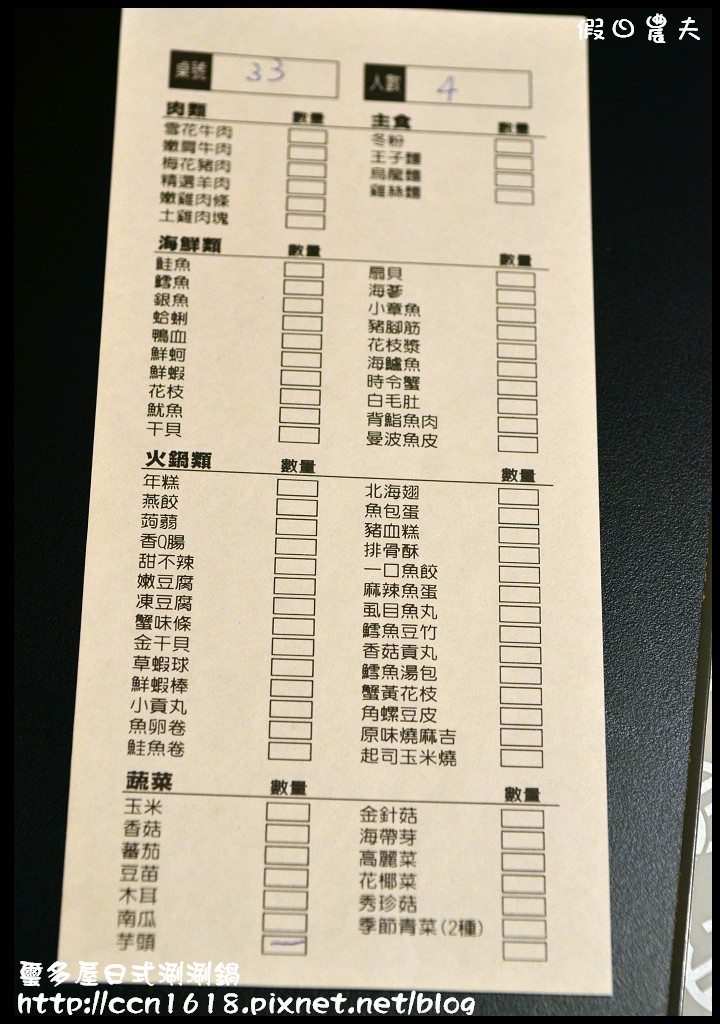 假日農夫
桌號 33 人數 4
肉類 數量 主食 數量
雪花牛肉 冬粉
嫩肩牛肉 王子麵
梅花豬肉 烏龍麵
精選羊肉 雞絲麵
嫩雞肉條
土雞肉塊
海鮮類 數量 數量
鮭魚 扇貝
鱈魚 海蔘
銀魚 小章魚
蛤蜊 豬腳筋
鴨血 花枝漿
鮮蚵 海鱸魚
鮮蝦 時令蟹
花枝 白毛肚
魷魚 背鮨魚肉
干貝 曼波魚皮
火鍋類 數量 數量
年糕 北海翅
燕餃 魚包蛋
蒟蒻 豬血糕
香Q腸 排骨酥
甜不辣 一口魚餃
嫩豆腐 麻辣魚蛋
凍豆腐 虱目魚丸
蟹味條 鱈魚豆竹
金干貝 香菇貢丸
草蝦球 鱈魚湯包
鮮蝦棒 蟹黃花枝
小貢丸 角螺豆皮
魚卵卷 原味燒麻吉
鮭魚卷 起司玉米燒
蔬菜 數量 數量
玉米 金針菇
香菇 海帶芽
蕃茄 高麗菜
豆苗 花椰菜
木耳 秀珍菇
南瓜 季節青菜(2種)
芋頭 一
璽多屋日式涮涮鍋
http://ccn1618.pixnet.net/blog